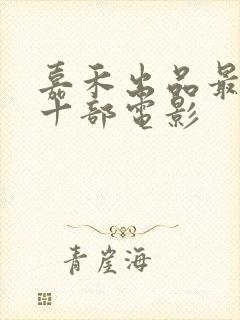 嘉禾出品最
十部电影
青崖海